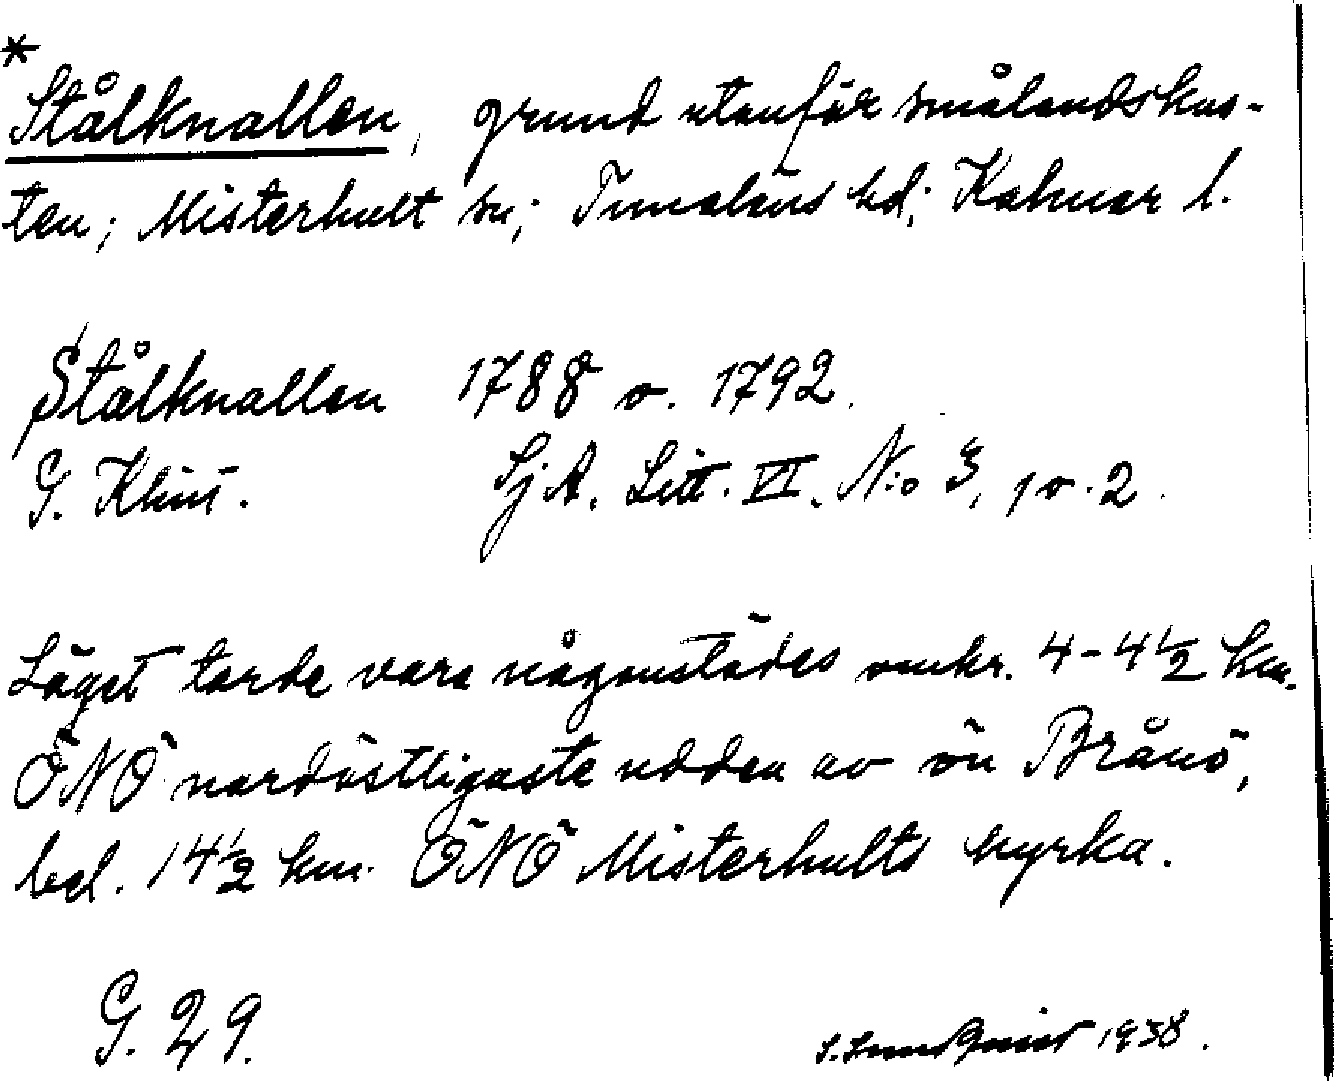 *
Stålknallen, grund utanför smålandskus-
ten; Misterhult sn; Tunaläns hd; Kalmar l.
Stålknallen 1788 o. 1792.
G. Klint. SjA. Litt. VI. N:o 3, 1 o. 2.
Läget torde vara någonstädes omkr. 4-4½ km.
ÖNÖ nordöstligaste udden av ön Brånö,
bel. 14½ km. ÖNÖ Misterhults kyrka.
G. 29. S. Lundquist 1938.